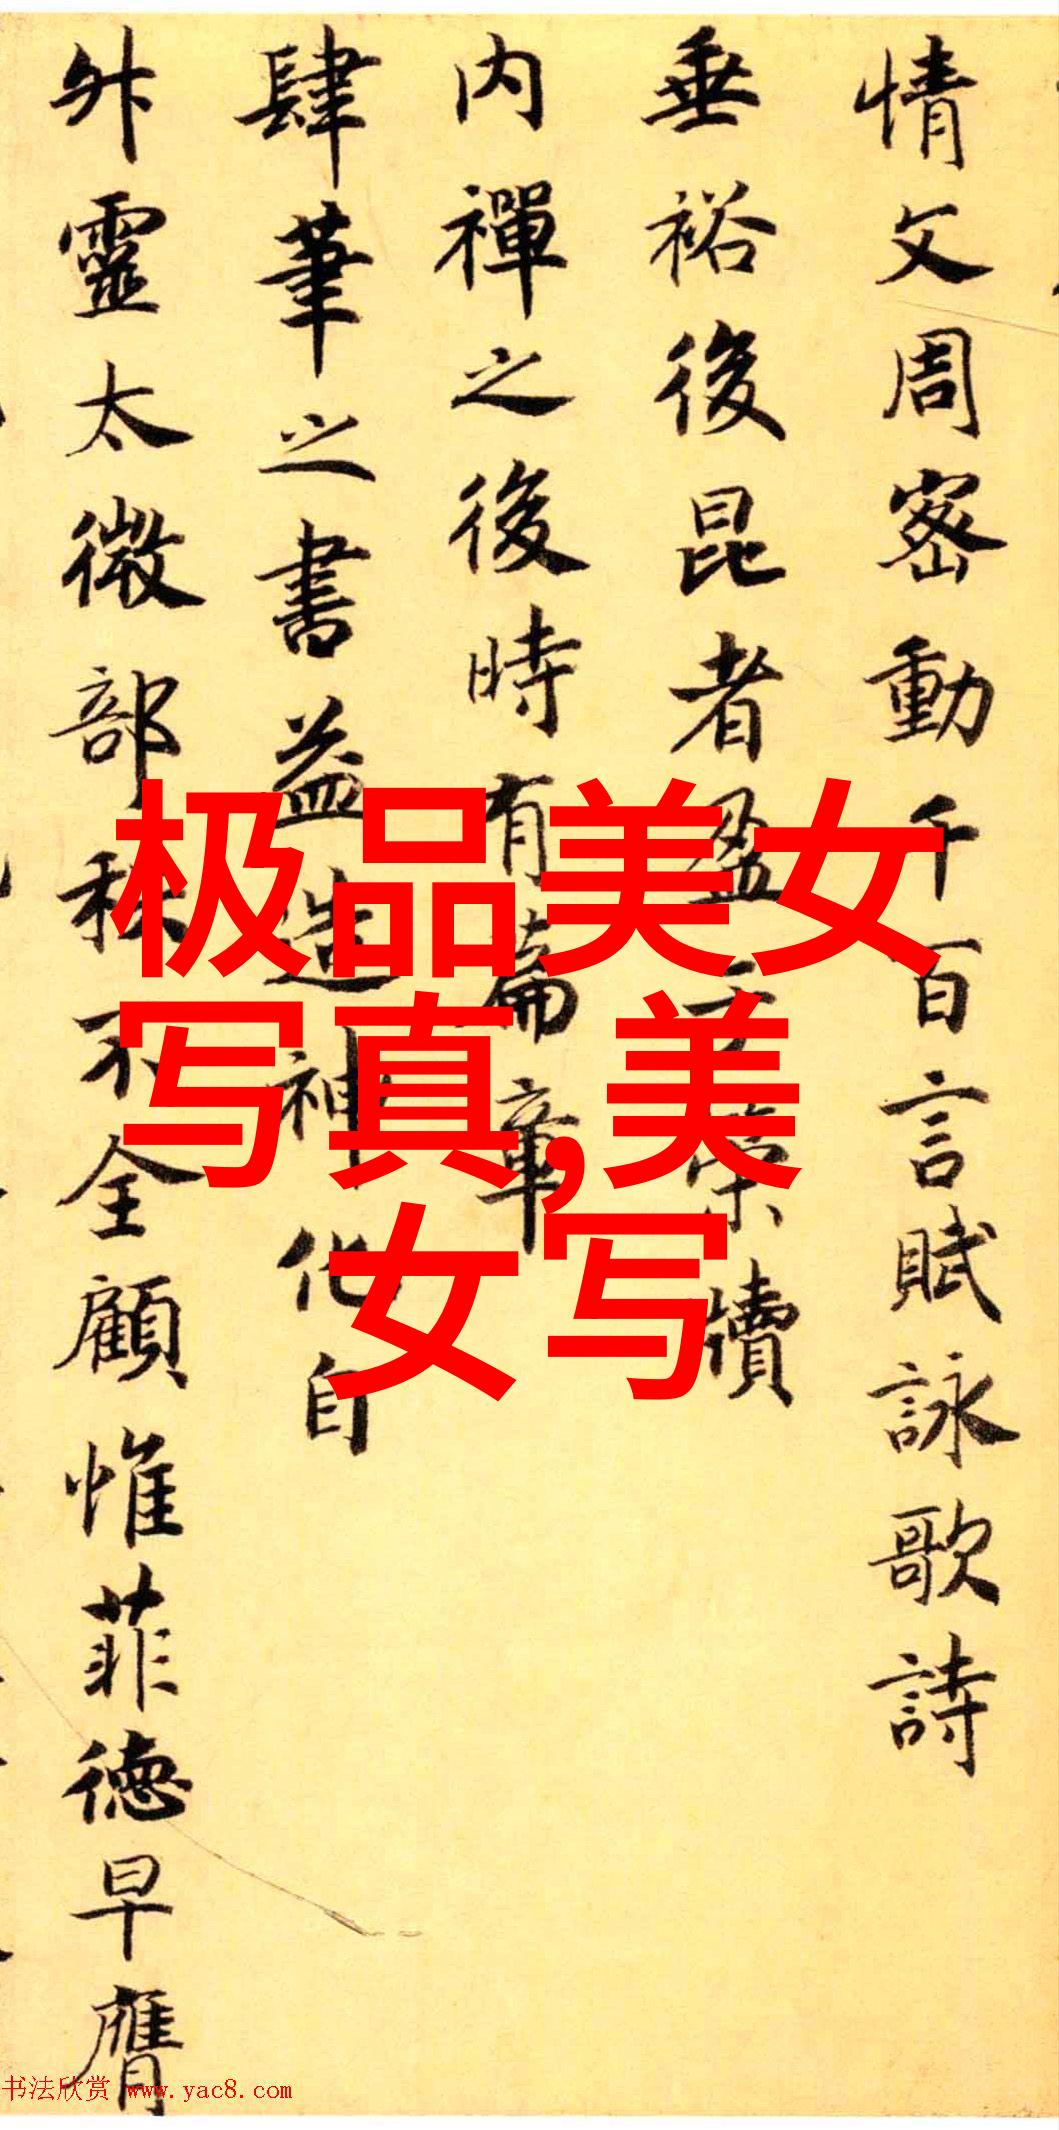 情文周密動千百言賦詠歌詩
垂裕後昆者盈
牘
内禪之後時有篇章
肆筆之書益造神化自
外靈太微部秩不全顧惟菲德早膺
极品美女
写真,美
女写
书法欣赏 www.yac8.com